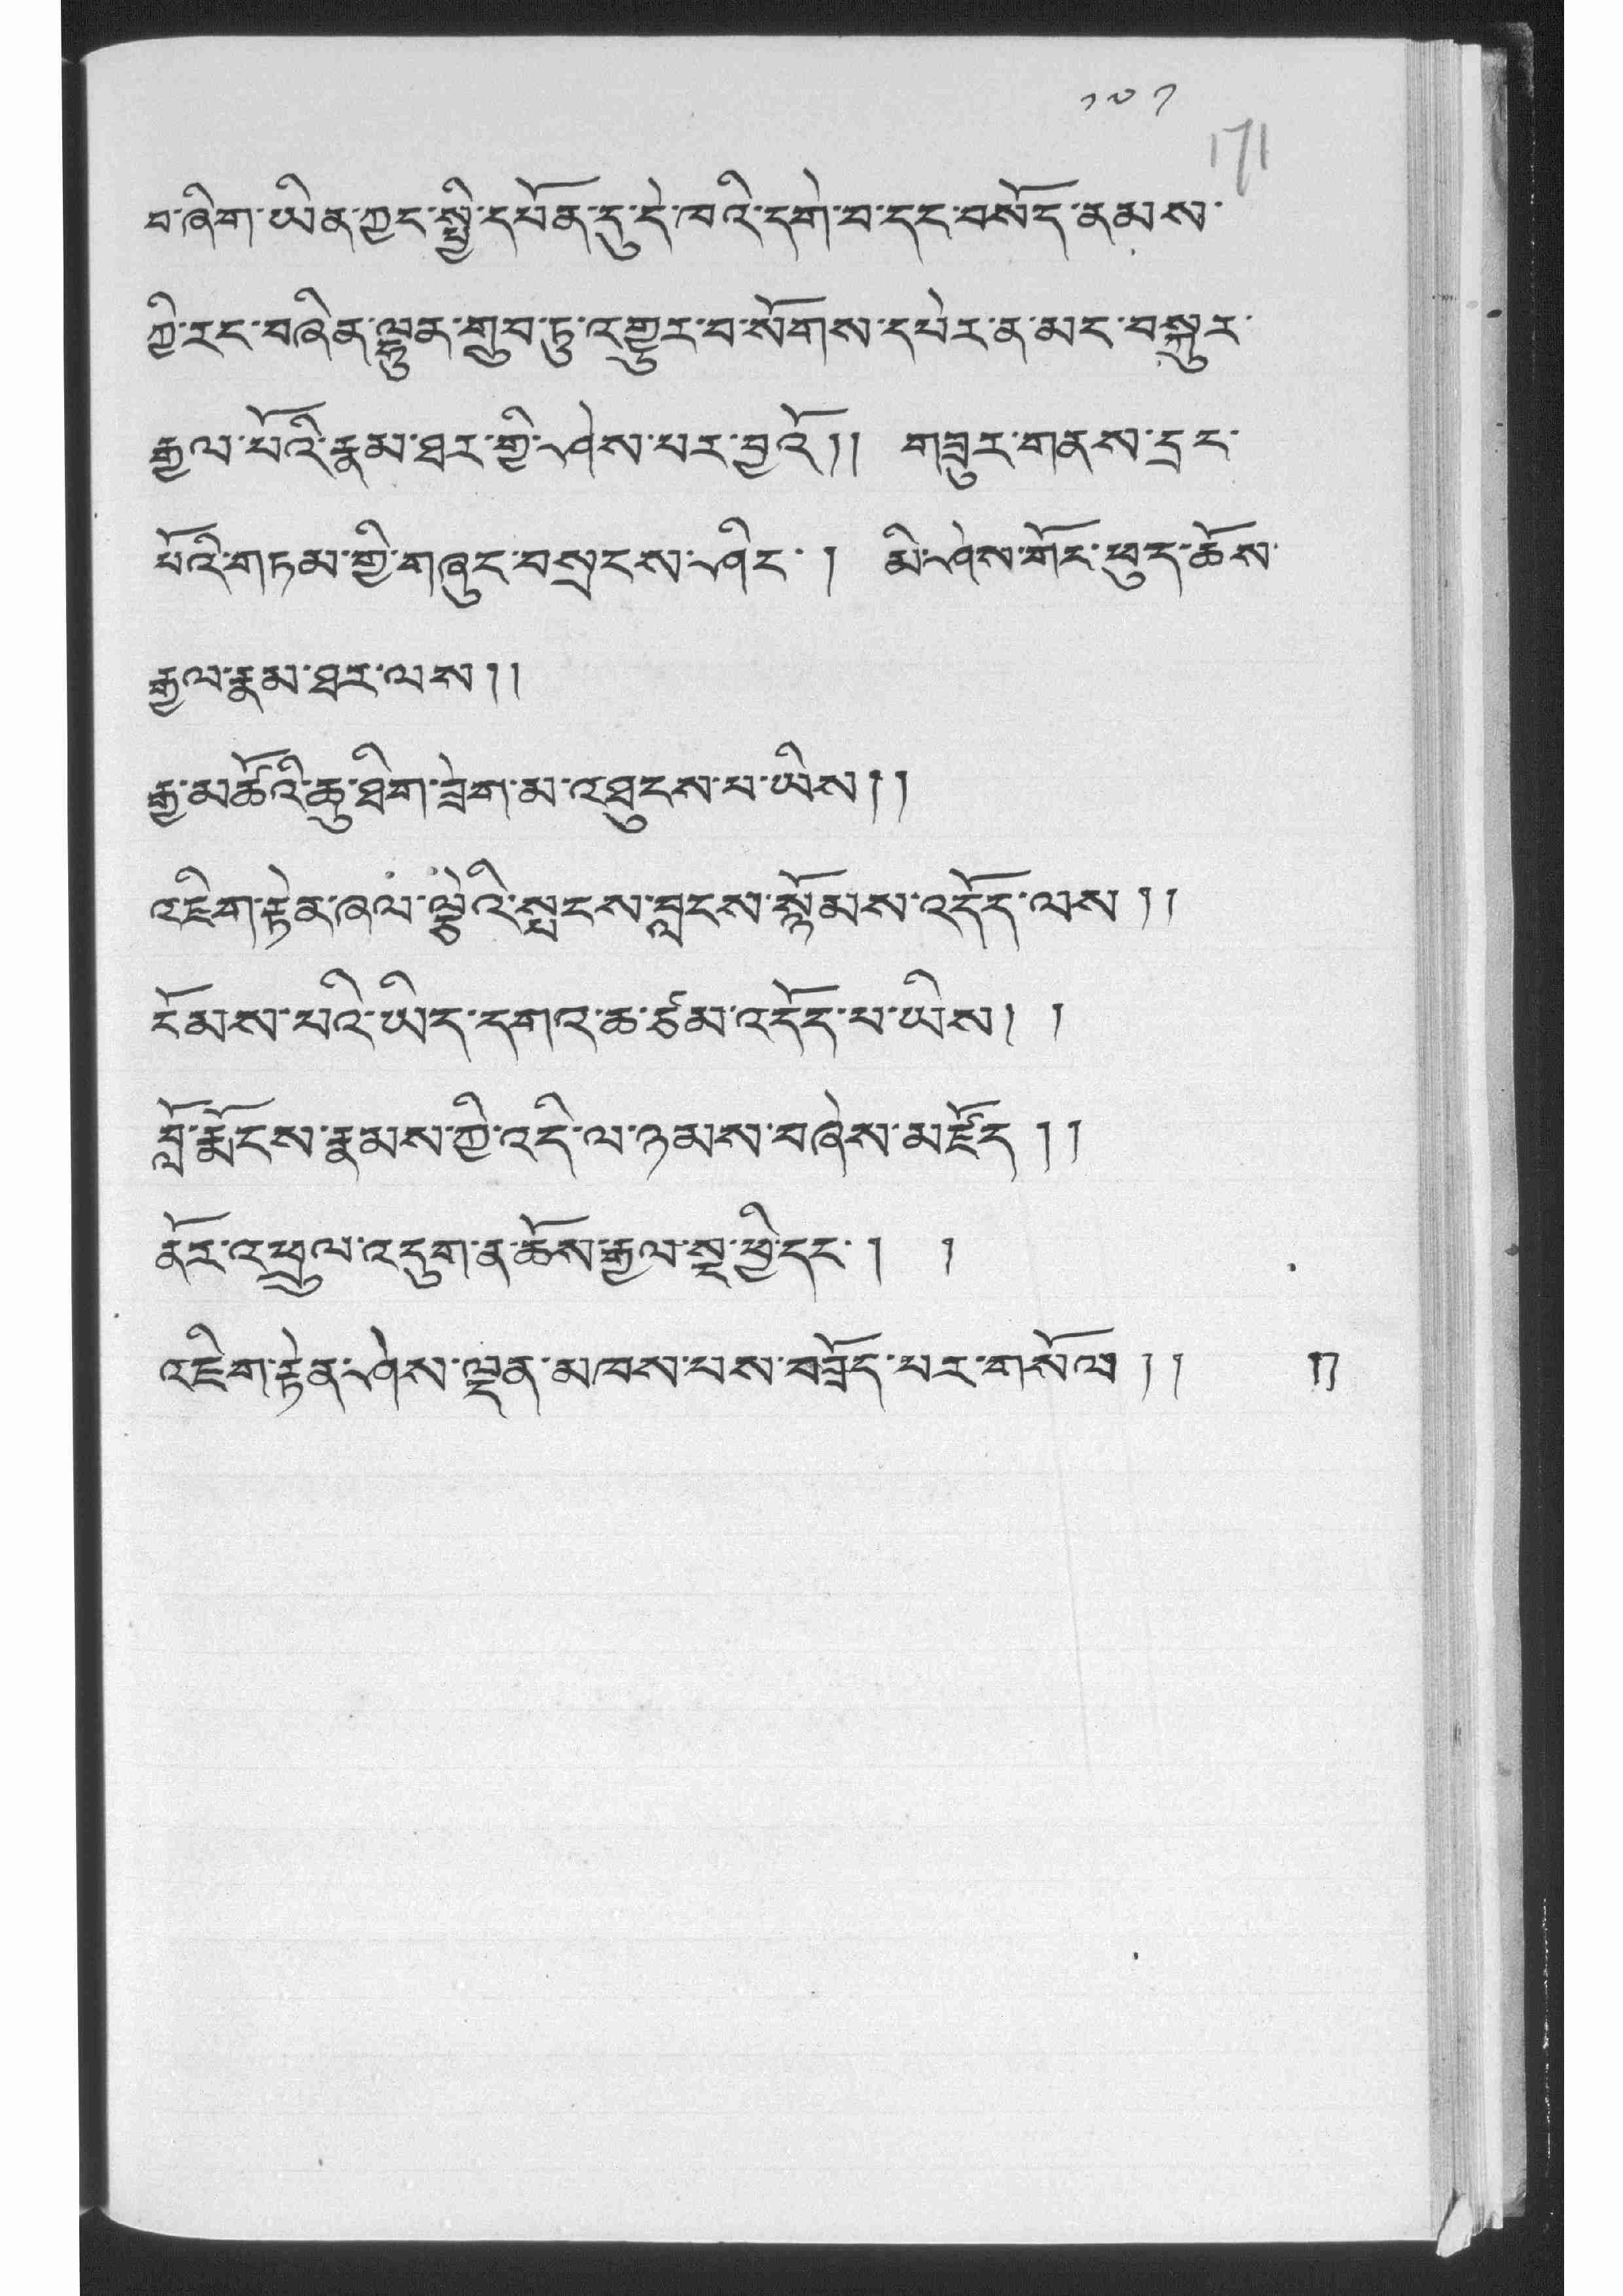 ༡༧༡
171
བ་ཞིག་ཡིན་ཀྱང་སྤྱི་དཔོན་དུ་དེ་ཁའི་དགེ་བ་དང་བསོད་ནམས་
ཀྱི་རང་བཞིན་ལྷུན་གྲུབ་ཏུ་འགྱུར་བ་སོགས་དཔེར་ན་མང་བསྐུར་
རྒྱལ་པོའི་རྣམ་ཐར་གྱི་ཤེས་པར་བྱའོ།། གཟུར་གནས་དྲང་
པོའི་གཏམ་གྱི་གཞུང་བསྲངས་ཤིང་། མི་ཤེས་གོང་ཕུད་ཆོས་
རྒྱལ་རྣམ་ཐར་ལས།།
རྒྱ་མཚོའི་ཆུ་ཐིག་ཟེག་མ་འཐུངས་པ་ཡིས།།
འཇིག་རྟེན་ཞལ་ལྕེའི་སྤངས་བླངས་སྙོམས་འདོད་ལས།།
ངོམས་པའི་ཡིད་དགའ་ཆ་ཙམ་འདོད་པ་ཡིས། །
བློ་རྨོངས་རྣམས་ཀྱི་འདི་ལ་ཉམས་བཞེས་མཛོད།།
ནོར་འཕྲུལ་འདུག་ན་ཆོས་རྒྱལ་སྔ་ཕྱི་དང་། །
འཇིག་རྟེན་ཤེས་ལྡན་མཁས་པས་བཟོད་པར་གསོལ།།